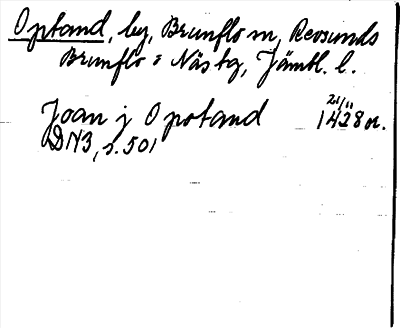 Optand, by, Brunflo sn, Revsunds
Brunflo o Näs tg, Jämtl. l.
Joan j Opotand 21/11 1428 or.
DN3, s. 501